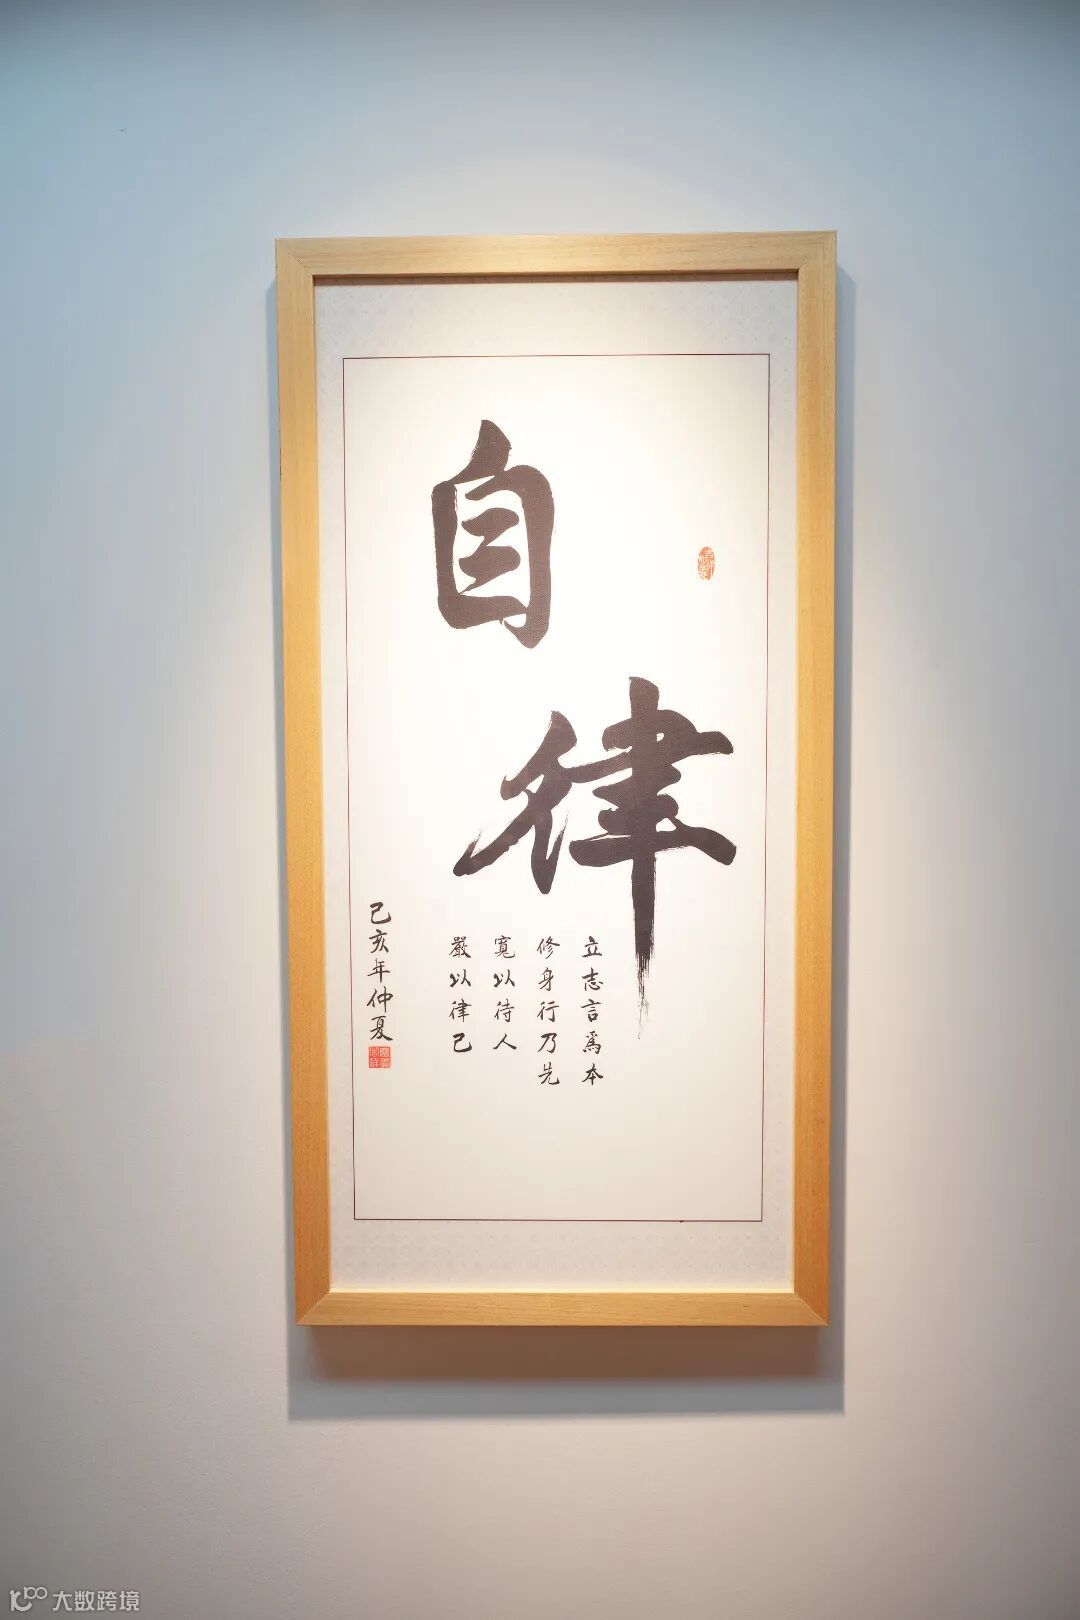 自律
立志言爲本
修身行乃先
寬以待人
嚴以律己
己亥年仲夏
大数跨境